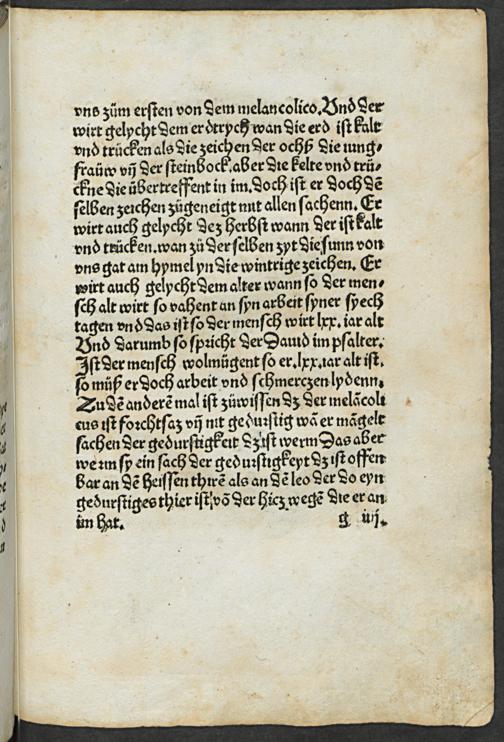 vns zům ersten von dem melancolico. Vnd der
wirt gelycht dem erdtrych wan die erd ist kalt
vnd trücken als die zeichen der ochß die iung-
fraůw vñ der steinbock. aber die kelte vnd trü-
ckne die übertreffent in im. doch ist er doch dē
selben zeichen zůgeneigt mit allen sachenn. Er
wirt auch gelycht dez herbst wann der ist kalt
vnd trücken. wan zů der selben zyt die sunn von
vns gat am hymel yn die wintrige zeichen. Er
wirt auch gelycht dem alter wann so der men-
sch alt wirt so vahent an syn arbeit syner syech
tagen vnd das ist so der mensch wirt lxx. iar alt
Vnd darumb so spricht der Dauid im psalter.
Ist der mensch wolmügent so er .lxx. iar alt ist.
so můß er doch arbeit vnd schmerczen lydenn.
Zu dē anderē mal ist zůwissen dz der melācoli
cus ist forchtsaz vñ nit gedurstig wā er māgelt
sachen der gedurstigkeit dz ist werm Das aber
werm sy ein sach der gedurstigkeyt dz ist offen
bar an dē heissen thirē als an dē leo der do eyn
gedurstiges thier ist, vō der hicz wegē die er an
im hat. g iij.